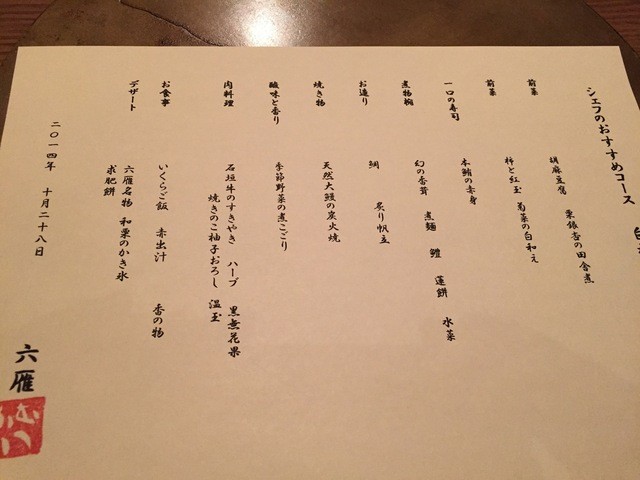 シェフのおすすめコース
前菜 胡麻豆腐 栗銀杏の田舎煮
前菜 柿と紅玉 菊菜の白和え
一口の寿司 本鮪の赤身
煮物椀 幻の香茸 煮麺 鱧 蓮餅 水菜
お造り 鯛 炙り帆立
焼き物 天然大鰻の炭火焼
酸味と香り 季節野菜の煮こごり
肉料理 石垣牛のすきやき ハーブ 黒無花果
焼きのこ柚子おろし 温玉
お食事 いくらご飯 赤出汁 香の物
デザート 六雁名物 和栗のかき氷
求肥餅
二〇一四年 十月二十八日
六雁